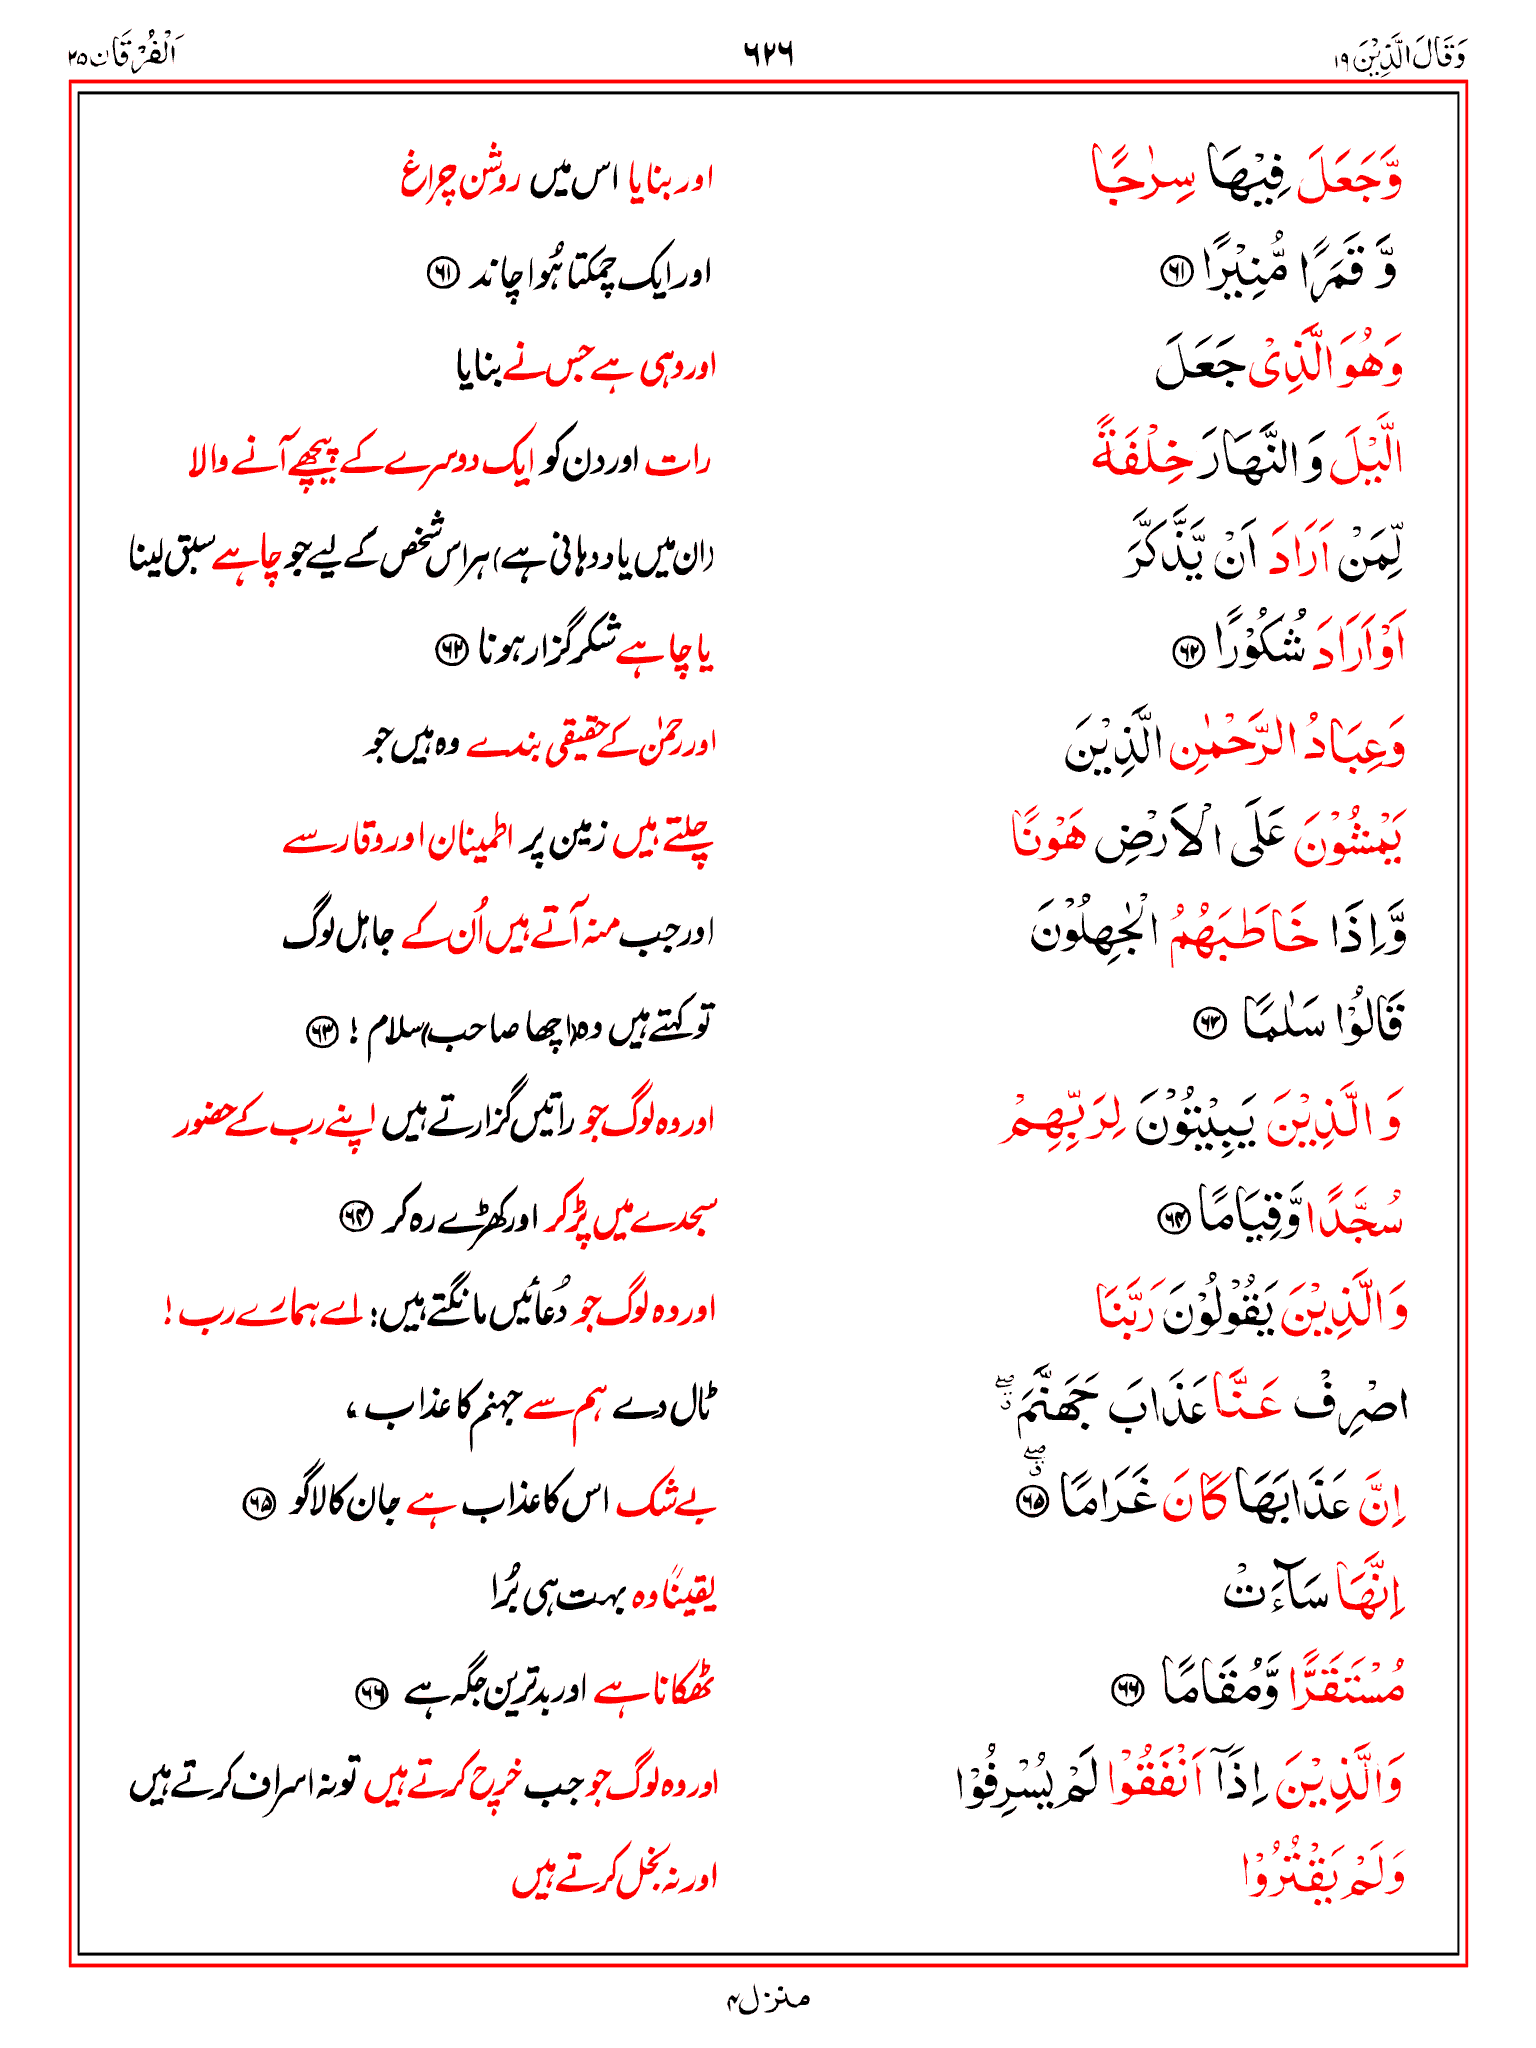 وَقَالَ الَّذِیْنَ ۱۹ ۶۲۶ اَلْفُرْقَان ۲۵
وَّجَعَلَ فِیْهَا سِرٰجًا اور بنایا اس میں روشن چراغ
وَّ قَمَرًا مُّنِیْرًا ۶۱ اور ایک چمکتا ہُوا چاند ۶۱
وَهُوَ الَّذِیْ جَعَلَ اور وہی ہے جس نے بنایا
الَّیْلَ وَ النَّهَارَ خِلْفَةً رات اور دن کو ایک دوسرے کے پیچھے آنے والا
لِّمَنْ اَرَادَ اَنْ یَّذَّكَّرَ (ان میں یاد دہانی ہے) ہر اس شخص کے لیے جو چاہے سبق لینا
اَوْ اَرَادَ شُكُوْرًا ۶۲ یا چاہے شکر گزار ہونا ۶۲
وَعِبَادُ الرَّحْمٰنِ الَّذِیْنَ اور رحمٰن کے حقیقی بندے وہ ہیں جو
یَمْشُوْنَ عَلَی الْاَرْضِ هَوْنًا چلتے ہیں زمین پر اطمینان اور وقار سے
وَّاِذَا خَاطَبَهُمُ الْجٰهِلُوْنَ اور جب منہ آتے ہیں اُن کے جاہل لوگ
قَالُوْا سَلٰمًا ۶۳ تو کہتے ہیں وہ (اچھا صاحب) سلام ! ۶۳
وَ الَّذِیْنَ یَبِیْتُوْنَ لِرَبِّهِمْ اور وہ لوگ جو راتیں گزارتے ہیں اپنے رب کے حضور
سُجَّدًا وَّقِیَامًا ۶۴ سجدے میں پڑ کر اور کھڑے رہ کر ۶۴
وَالَّذِیْنَ یَقُوْلُوْنَ رَبَّنَا اور وہ لوگ جو دُعائیں مانگتے ہیں: اے ہمارے رب !
اصْرِفْ عَنَّا عَذَابَ جَهَنَّمَ ۖق ٹال دے ہم سے جہنم کا عذاب ،
اِنَّ عَذَابَهَا كَانَ غَرَامًا ۖق ۶۵ بے شک اس کا عذاب ہے جان کا لاگو ۶۵
اِنَّهَا سَآءَتْ یقینًا وہ بہت ہی بُرا
مُسْتَقَرًّا وَّمُقَامًا ۶۶ ٹھکانا ہے اور بدترین جگہ ہے ۶۶
وَالَّذِیْنَ اِذَاۤ اَنْفَقُوْا لَمْ یُسْرِفُوْا اور وہ لوگ جو جب خرچ کرتے ہیں تو نہ اسراف کرتے ہیں
وَلَمْ یَقْتُرُوْا اور نہ بخل کرتے ہیں
منزل ۴